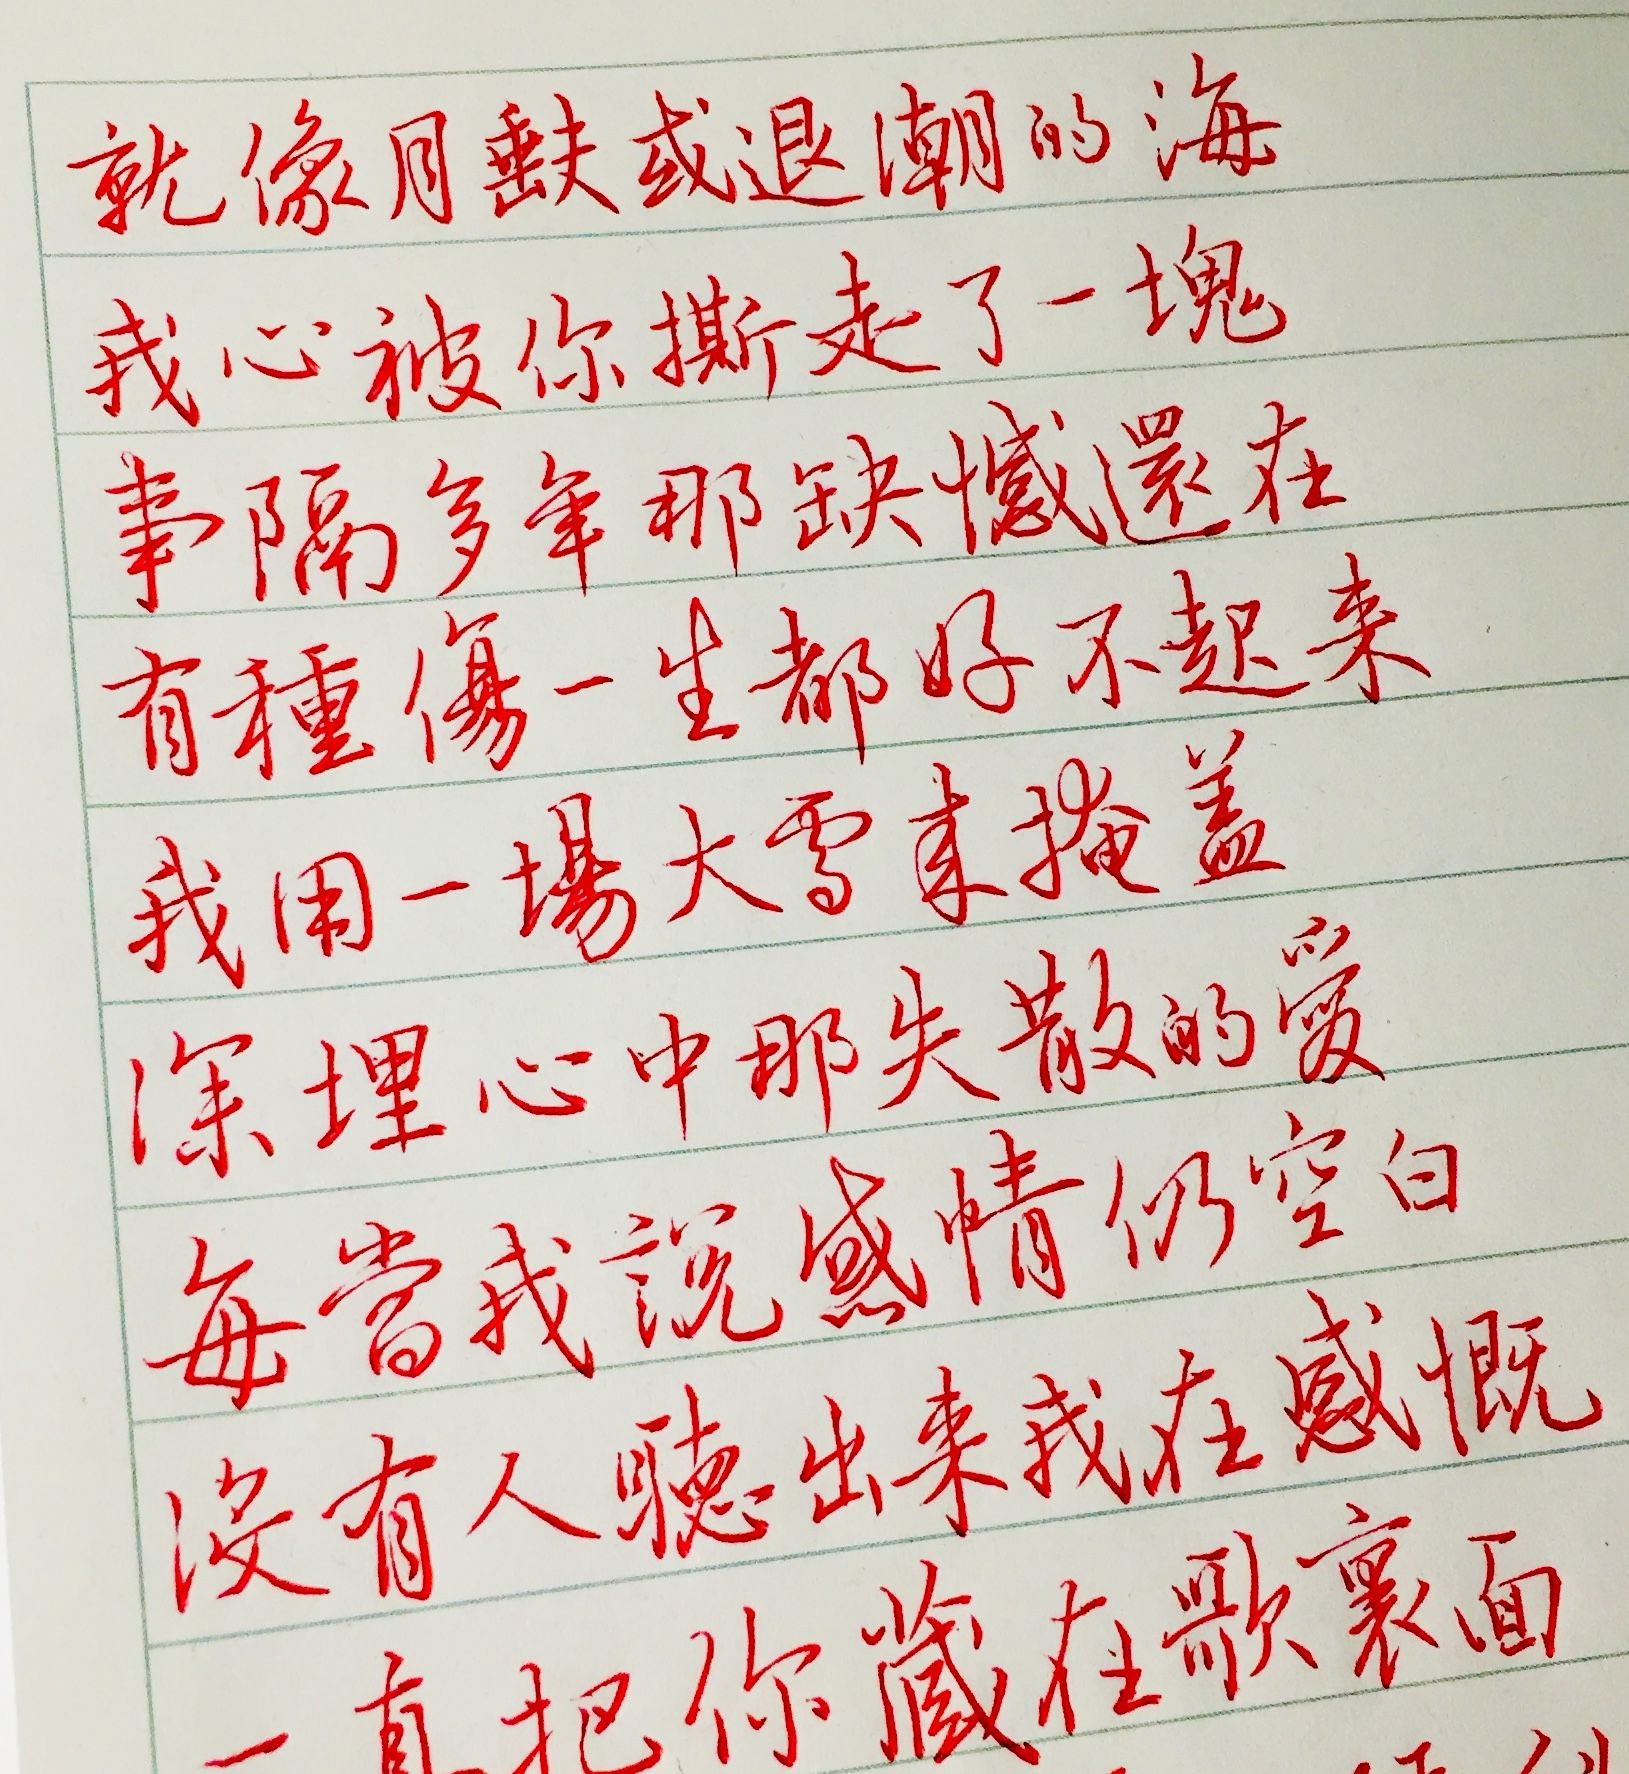 就像月缺或退潮的海
我心被你撕走了一塊
事隔多年那缺憾還在
有種傷一生都好不起来
我用一場大雪来掩蓋
深埋心中那失散的愛
每當我說感情仍空白
沒有人聽出来我在感慨
一直把你藏在歌裏面